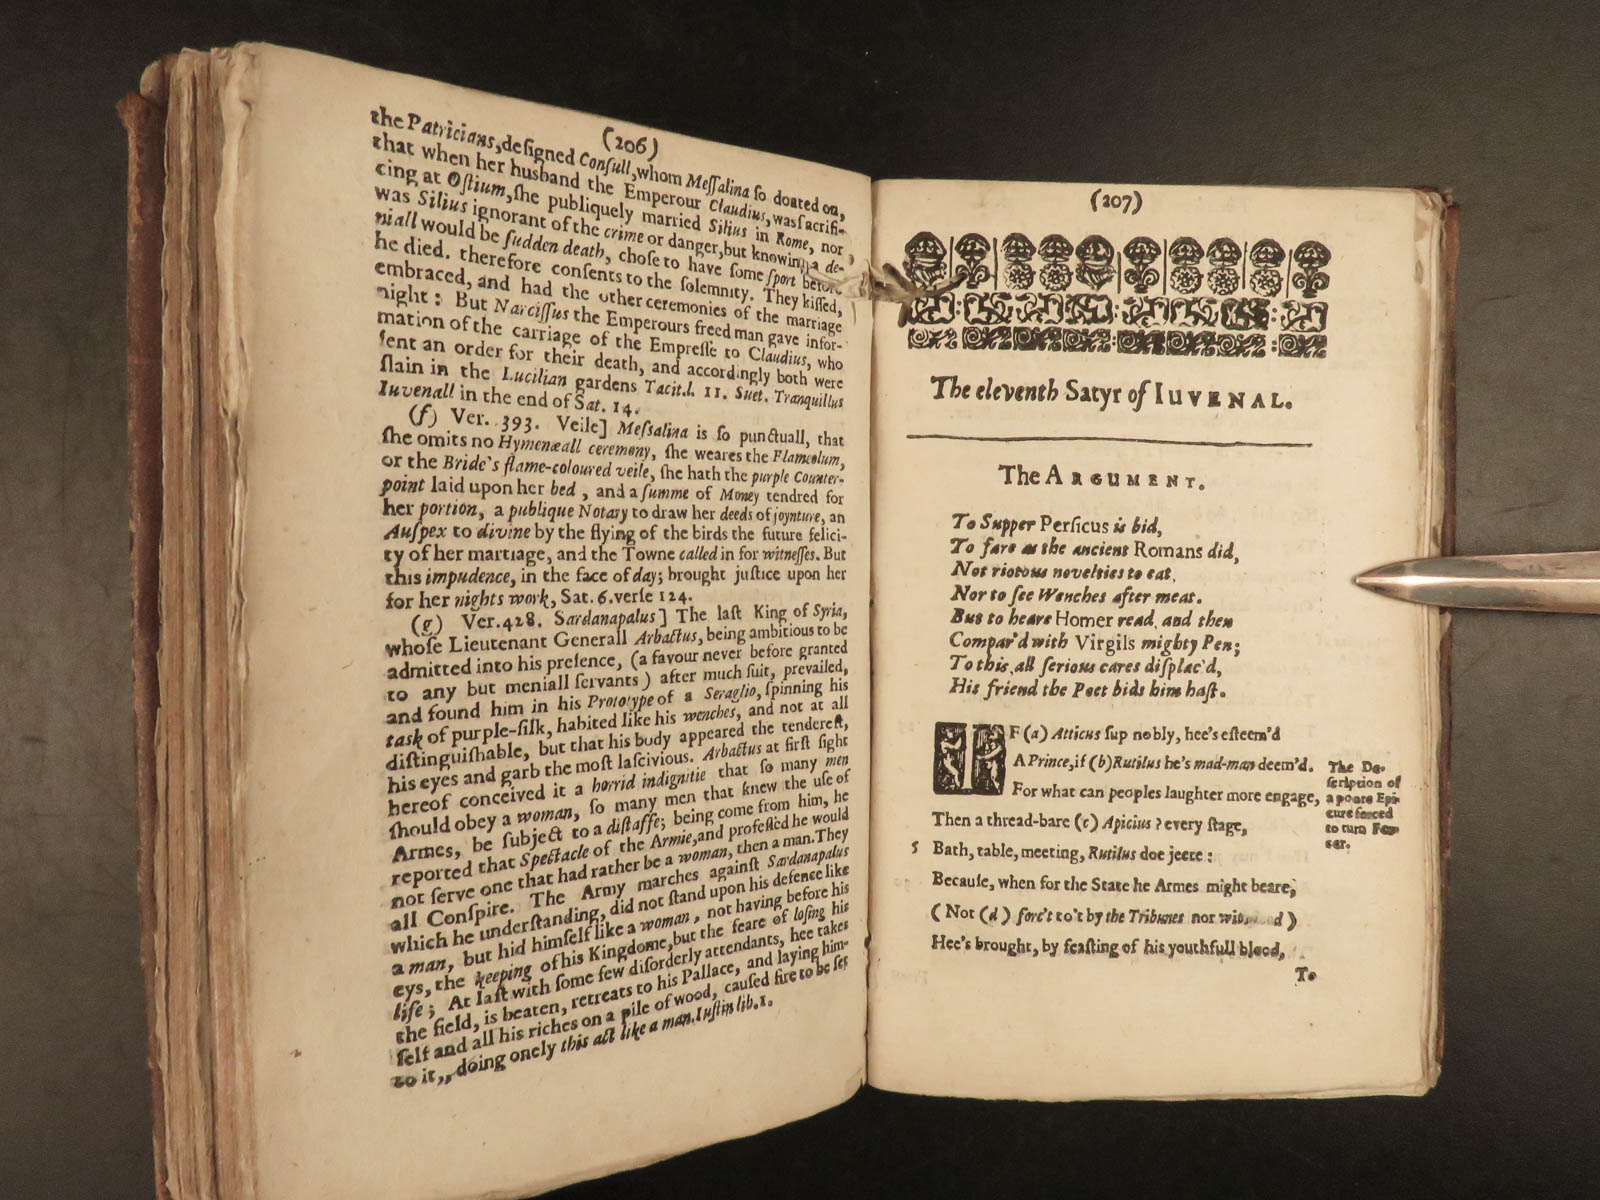 (206)
the Patricians, deſigned Conſull, whom Meſſalina ſo doated on,
that when her husband the Emperour Claudius, was ſacrifi-
cing at Oſtium, ſhe publiquely married Silius in Rome, nor
was Silius ignorant of the crime or danger, but knowing a de-
niall would be ſudden death, choſe to have ſome ſport before
he died. therefore conſents to the ſolemnity. They kiſſed,
embraced, and had the other ceremonies of the marriage
night: But Narciſſus the Emperours freed man gave infor-
mation of the carriage of the Empreſſe to Claudius, who
ſent an order for their death, and accordingly both were
ſlain in the Lucilian gardens Tacit.l. 11. Suet. Tranquillus
Iuvenall in the end of Sat. 14.
(f) Ver. 393. Veile] Meſsalina is ſo punctuall, that
ſhe omits no Hymenæall ceremony, ſhe weares the Flameolum,
or the Bride's flame-coloured veile, ſhe hath the purple Counter-
point laid upon her bed, and a ſumme of Money tendred for
her portion, a publique Notary to draw her deeds of joynture, an
Auſpex to divine by the flying of the birds the future felici-
ty of her marriage, and the Towne called in for witneſſes. But
this impudence, in the face of day; brought juſtice upon her
for her nights work, Sat. 6. verſe 124.
(g) Ver. 428. Sardanapalus] The laſt King of Syria,
whoſe Lieutenant Generall Arbactus, being ambitious to be
admitted into his preſence, (a favour never before granted
to any but meniall ſervants) after much ſuit, prevailed,
and found him in his Prototype of a Seraglio, ſpinning his
task of purple-ſilk, habited like his wenches, and not at all
diſtinguiſhable, but that his body appeared the tendereſt,
his eyes and garb the moſt laſcivious. Arbactus at firſt ſight
hereof conceived it a horrid indignitie that ſo many men
ſhould obey a woman, ſo many men that knew the uſe of
Armes, be ſubject to a diſtaffe; being come from him, he
reported that Spectacle of the Armie, and profeſſed he would
not ſerve one that had rather be a woman, then a man. They
all Conſpire. The Army marches againſt Sardanapalus
which he underſtanding, did not ſtand upon his defence like
a man, but hid himſelf like a woman, not having before his
eys, the keeping of his Kingdome, but the feare of loſing his
life; At laſt with ſome few diſorderly attendants, hee takes
the field, is beaten, retreats to his Pallace, and laying him-
ſelf and all his riches on a pile of wood, cauſed fire to be ſet
to it, doing onely this act like a man. Iuſtin lib. 1.
(207)
The eleventh Satyr of IUVENAL.
The ARGUMENT.
To Supper Perſicus is bid,
To fare as the ancient Romans did,
Not riotous novelties to eat,
Nor to ſee Wenches after meat.
But to heare Homer read, and then
Compar'd with Virgils mighty Pen;
To this all ſerious cares diſplac'd,
His friend the Poet bids him haſt.
IF (a) Atticus ſup nobly, hee's eſteem'd
A Prince, if (b) Rutilus he's mad-man deem'd.
For what can peoples laughter more engage,
Then a thread-bare (c) Apicius? every ſtage,
5 Bath, table, meeting, Rutilus doe jeere:
Becauſe, when for the State he Armes might beare,
(Not (d) forc't to't by the Tribunes nor
Hee's brought, by feaſting of his youthfull blood,
To
The De-
ſcription of
a poore Epi-
cure forced
to turn Fen-
ser.